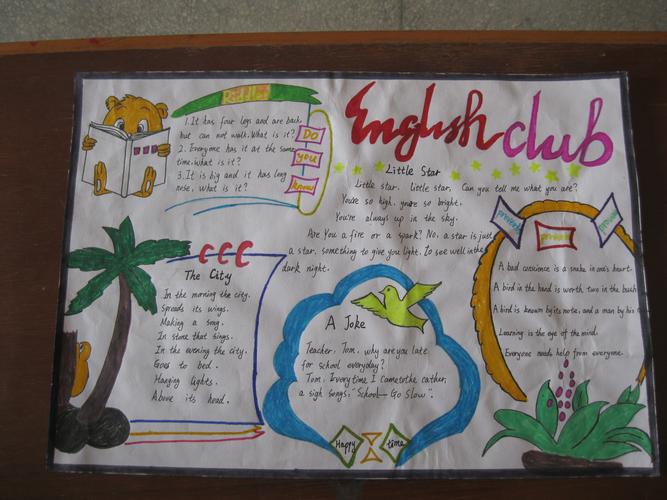 English club
Riddle
1. It has four legs and are back,
but can not walk. What is it?
2. Everyone has it at the same
time. what is it?
3. It is big and it has long
nose, What is it?
Do
you
know
Little Star
Little star, Little star, Can you tell me what you are?
You're so high, you're so bright,
You're always up in the sky.
Are you a fire or a spark? No, a star is just
a star, something to give you light, To see well in the
dark night.
The City
In the morning the city.
Spreads its wings.
Making a song.
In stone that sings.
In the evening the city.
Goes to bed.
Hanging lights.
Above its head.
A Joke
Teacher: Tom, why are you late
for school everyday?
Tom: Every time I come to the
a sigh songs, "School — Go Slow".
Happy
time
proverb
proverb
proverb
A bad conscience is a snake in one's heart.
A bird in the hand is worth two in the bush
A bird is known by its note, and a man by his
Learning is the eye of the mind.
Everyone needs help from everyone.